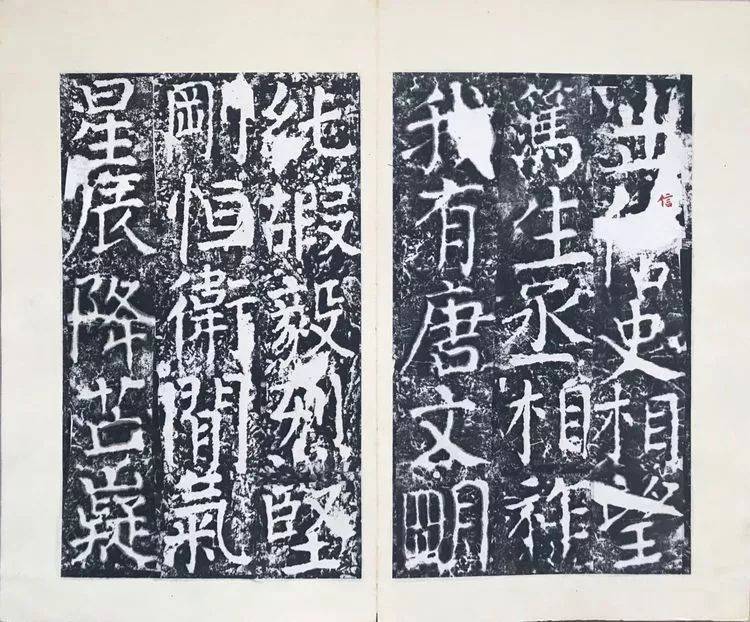 世史相望
篤生丞相祚
我有唐文明
純嘏毅烈堅
剛恒衛閒氣
星辰降芒嶷
信